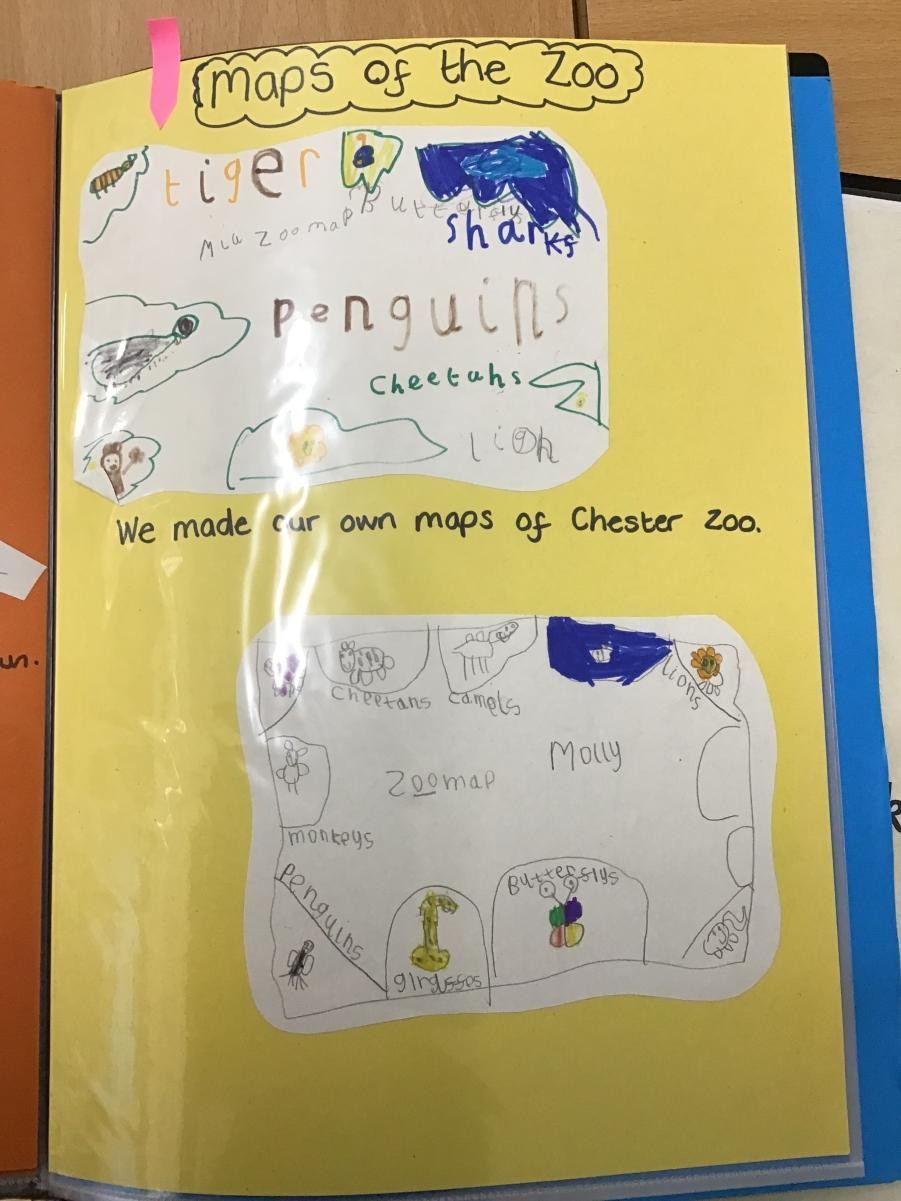 Maps of the Zoo
tiger
Mia zoomap
Butterfly
sharks
Penguins
Cheetahs
lion
We made our own maps of Chester Zoo.
cheetahs
camels
lions
Zoomap
Molly
monkeys
Penguins
Butterflys
un.